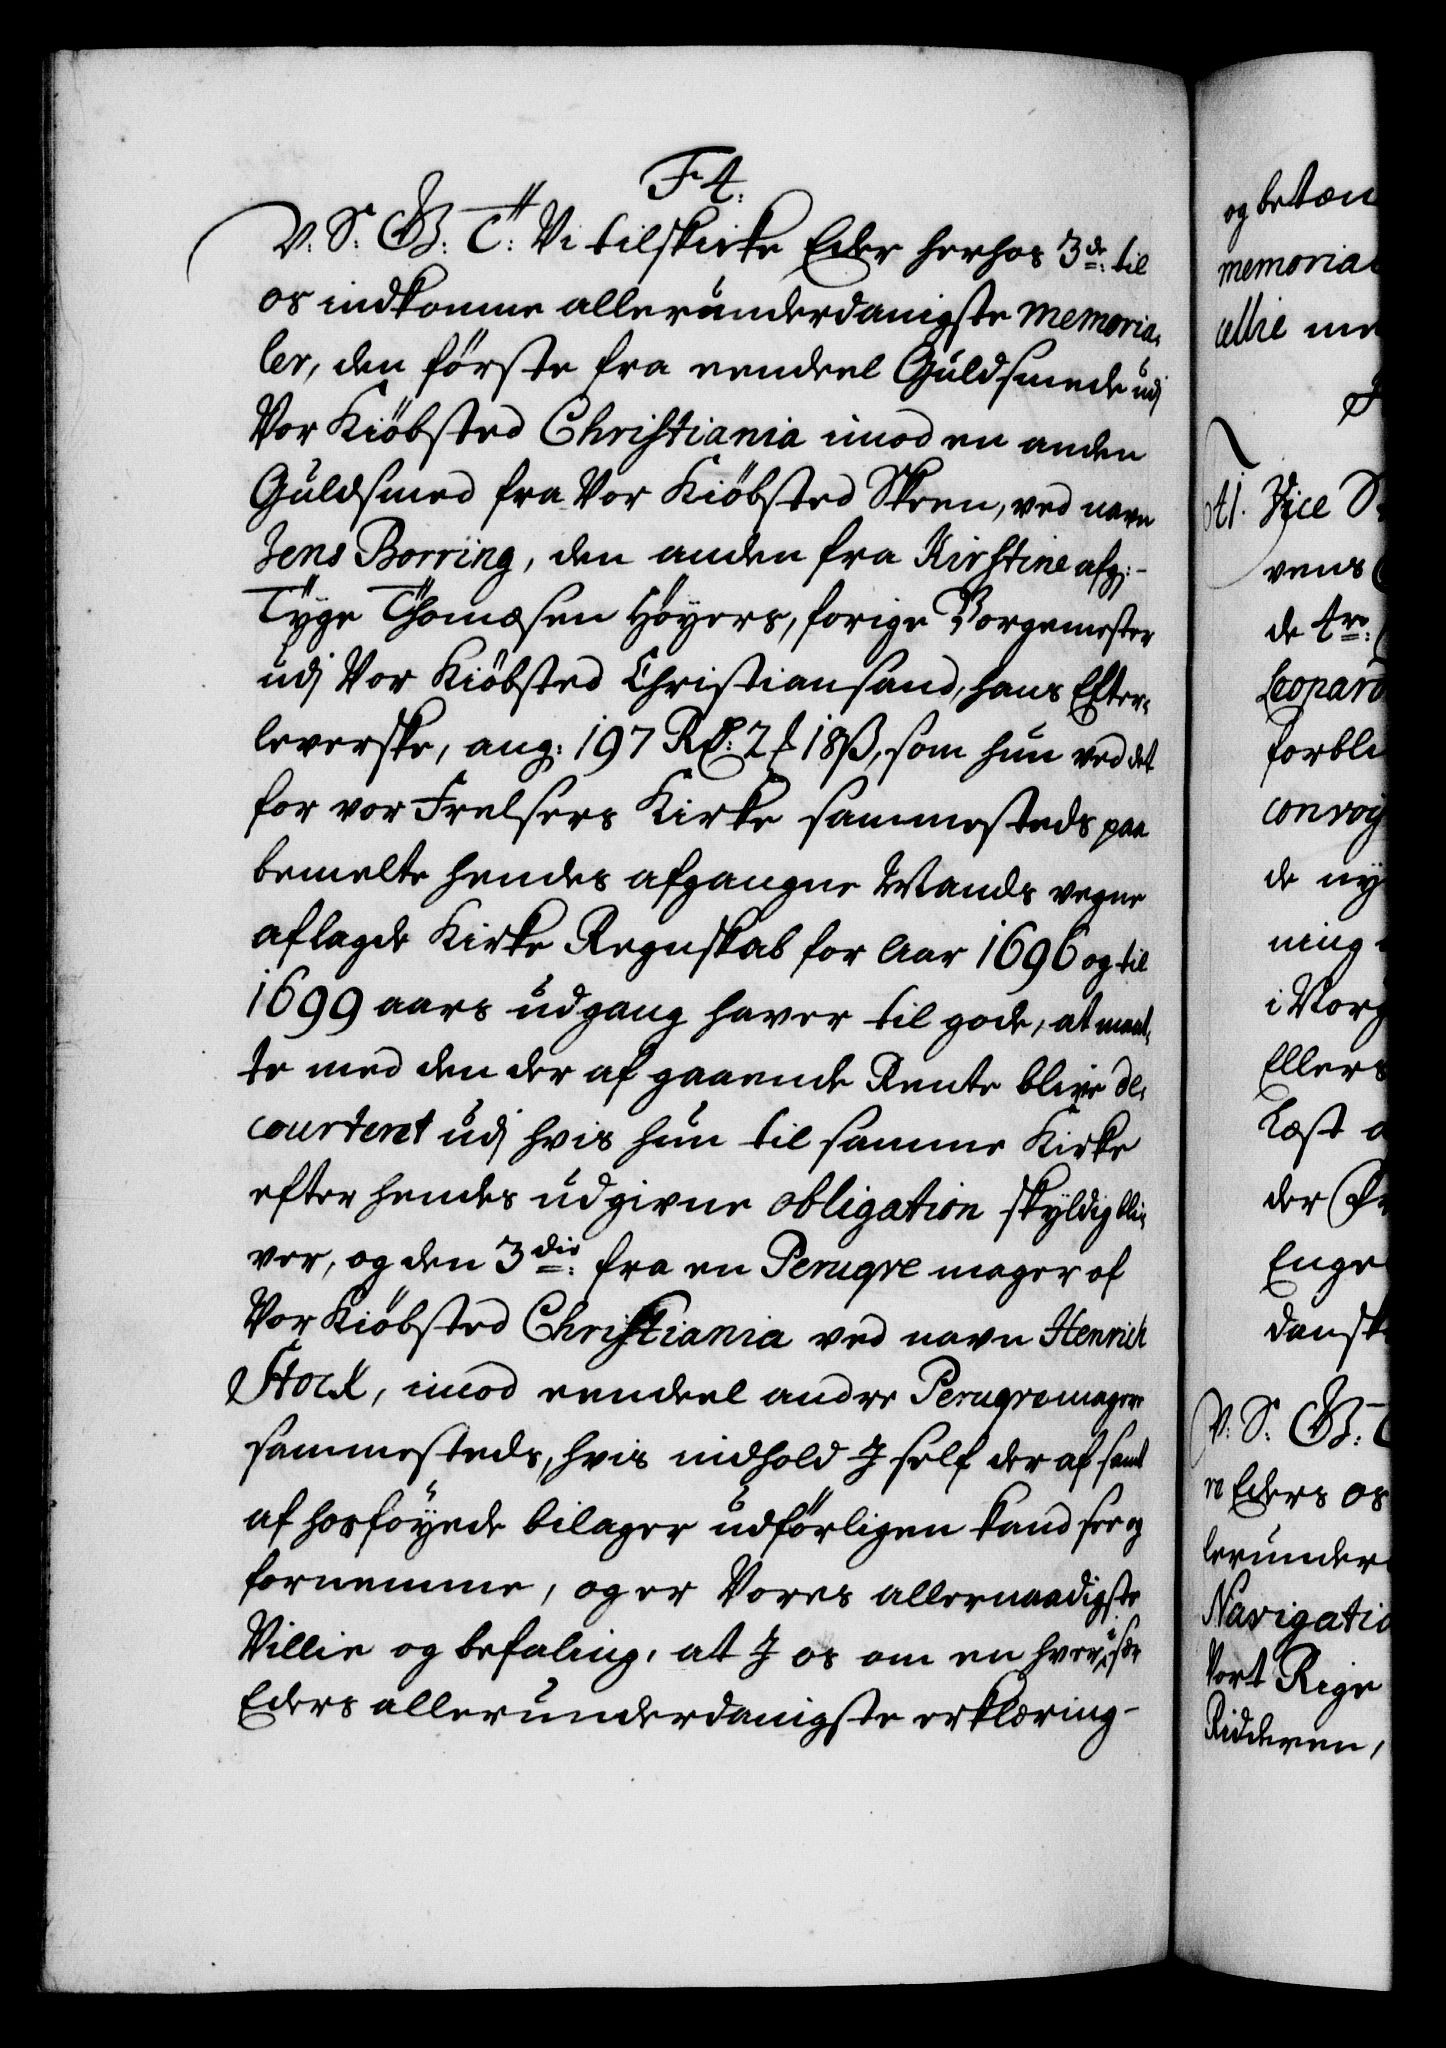 F 4.
V. S. G. T: Vi tilskicke Eder herhos 3de: til
os indkomne allerunderdanigste memoria-
ler, den förste fra eendeel Guldsmede udj
Vor Kiöbsted Christiania imod en anden
Guldsmed fra Vor Kiöbsted Skeen, ved navn
Jens Borring, den anden fra Kirstine afg:
Tÿge Thomæsen Höyers, forige Borgemester
udj Vor Kiöbsted Christiansand, hans Efter-
leverske, ang: 197 Rd: 2 ₰ 18 ß, som hun ved det
for vor Frelsers Kirke sammesteds paa
bemelte hendes afgangne Mands vegne
aflagde Kirke Regnskab for Aar 1696 og til
1699 aars udgang haver til gode, at maat-
te med den der af gaaende Rente blive de-
courteret udj hvis hun til samme Kirke
efter hendes udgivne obligation skÿldig bli-
ver, og den 3die: fra en Peruqve mager af
Vor Kiöbsted Christiania ved navn Henrich
Stock, imod eendeel andre Peruqvemagere
sammesteds, hvis indhold J self der af samt
af hosföÿede bilager udförligen kand see og
fornemme, og er Vores allernaadigste
Villie og befaling, at J os om en hver især
Eders allerunderdanigste erklæring
og betæn
memorial
willie
Vice
vens
de 4re:
Leopard
forbli
convoy
de nÿ
ning
i Norg
Ellers
Læst
der
Enge
dansk
V. S. G. T
re Eders os
lerunder
Navigatio
Vort Rige
Ridderen,